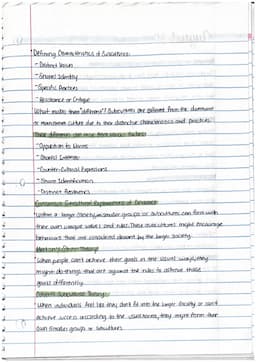 Defining Characteristics of Subcultures:
- Distinct Values
- Shared Identity
- Specific Practices
- Resistance or Critique
What makes them "different"? Subcultures are different from the dominant
or mainstream culture due to their distinctive characteristics and practices.
Their differences can arise from various factors:
- Opposition to Norms
- Shared Interests
- Counter-Cultural Expressions
- Shared Identification
- Distinct Aesthetics
Consensus Structural Explanations of Deviance:
- Within a larger society, smaller groups or subcultures can form with
their own unique values and rules. These subcultures might encourage
behaviours that are considered deviant by the larger society.
Merton's Strain Theory:
- When people can't achieve their goals in the usual ways, they
might do things that are against the rules to achieve those
goals differently.
Cohen's Subcultural Theory:
- When individuals feel like they don't fit into the larger society or can't
achieve success according to the usual norms, they might form their
own smaller groups or subcultures.